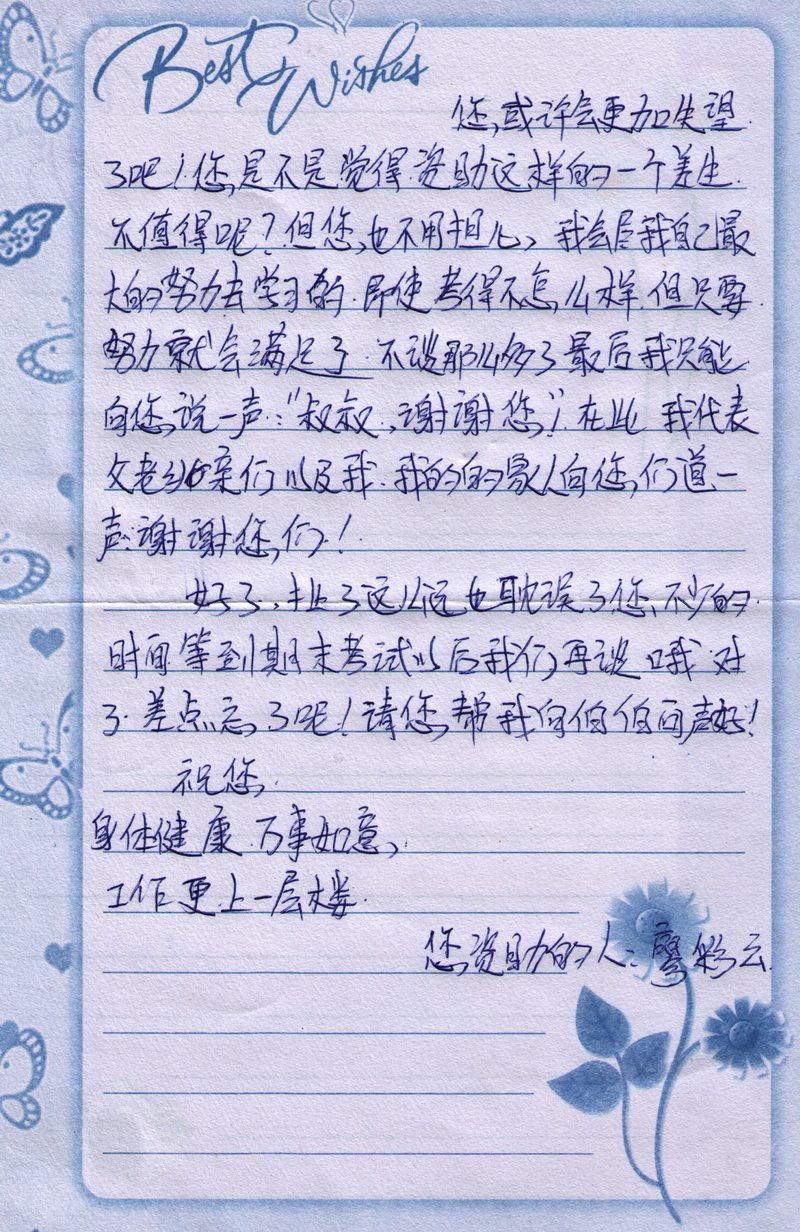 Best Wishes
您,或许会更加失望
了吧!您,是不是觉得资助这样的一个差生
不值得呢?但您,也不用担心,我会尽我自己最
大的努力去学习的.即使考得不怎么样.但只要
努力就会满足了.不谈那么多了最后我只能
向您,说一声:"叔叔,谢谢您"!在此我代表
父老乡亲们以及我.我的的家人向您,们道一
声:谢谢您,们!
好了.扯了这么远也耽误了您,不少的
时间等到期末考试以后我们再谈哦对
了.差点忘了呢!请您,帮我向伯伯问声好!
祝您,
身体健康.万事如意,
工作更上一层楼.
您,资助的人:廖彩云